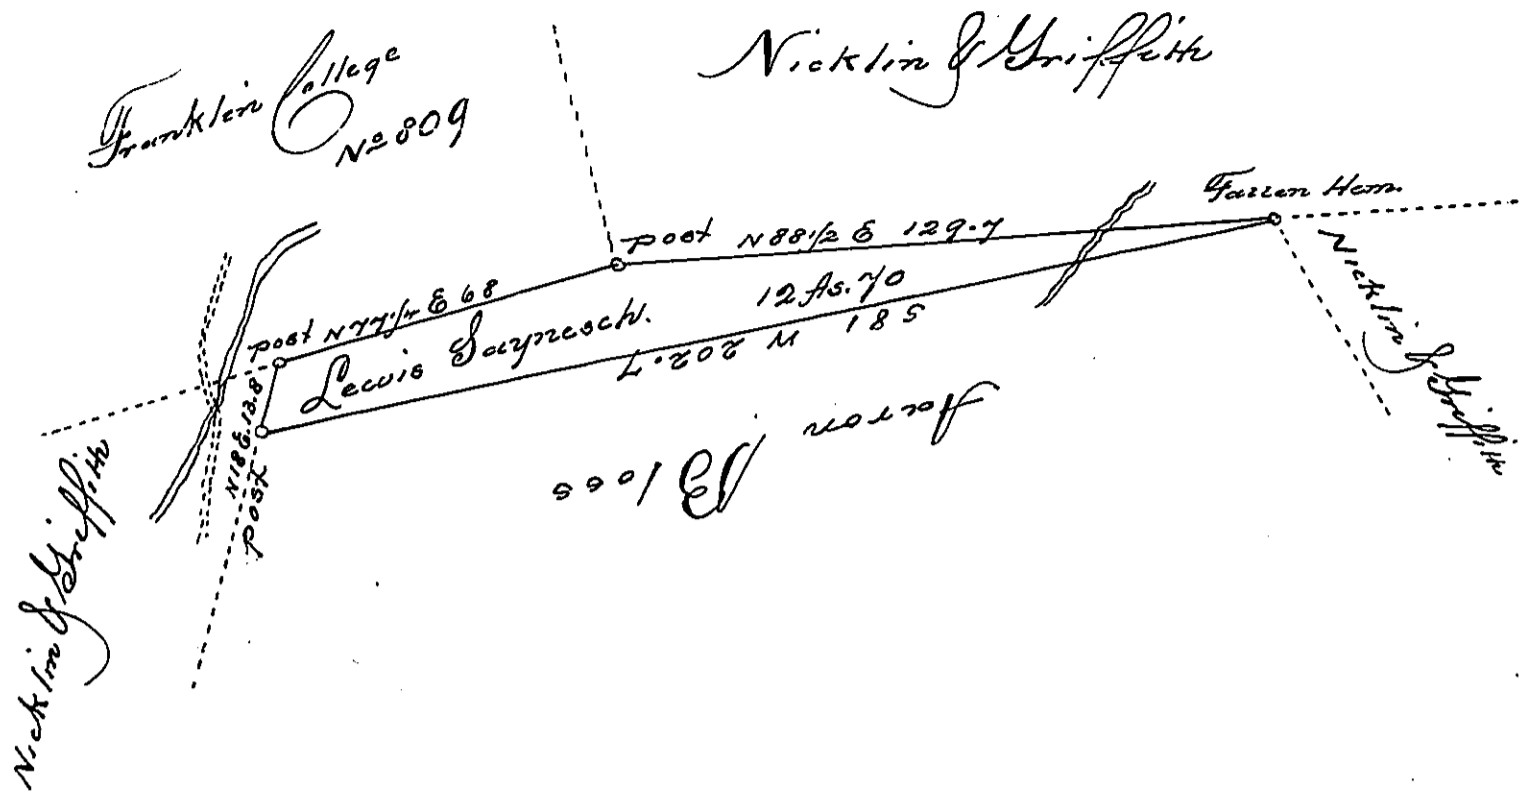 Franklin College
Nº 809
Nicklin & Griffith
Fallen Hem.
post N 88 1/2 E 129.7
post N 77 1/2 E 68
12 As. 70
S 81 W 202.7
Lewis
N 18 E. 13.8
post
Aaron Bloss
Nicklin & Griffith
Nicklin & Griffith